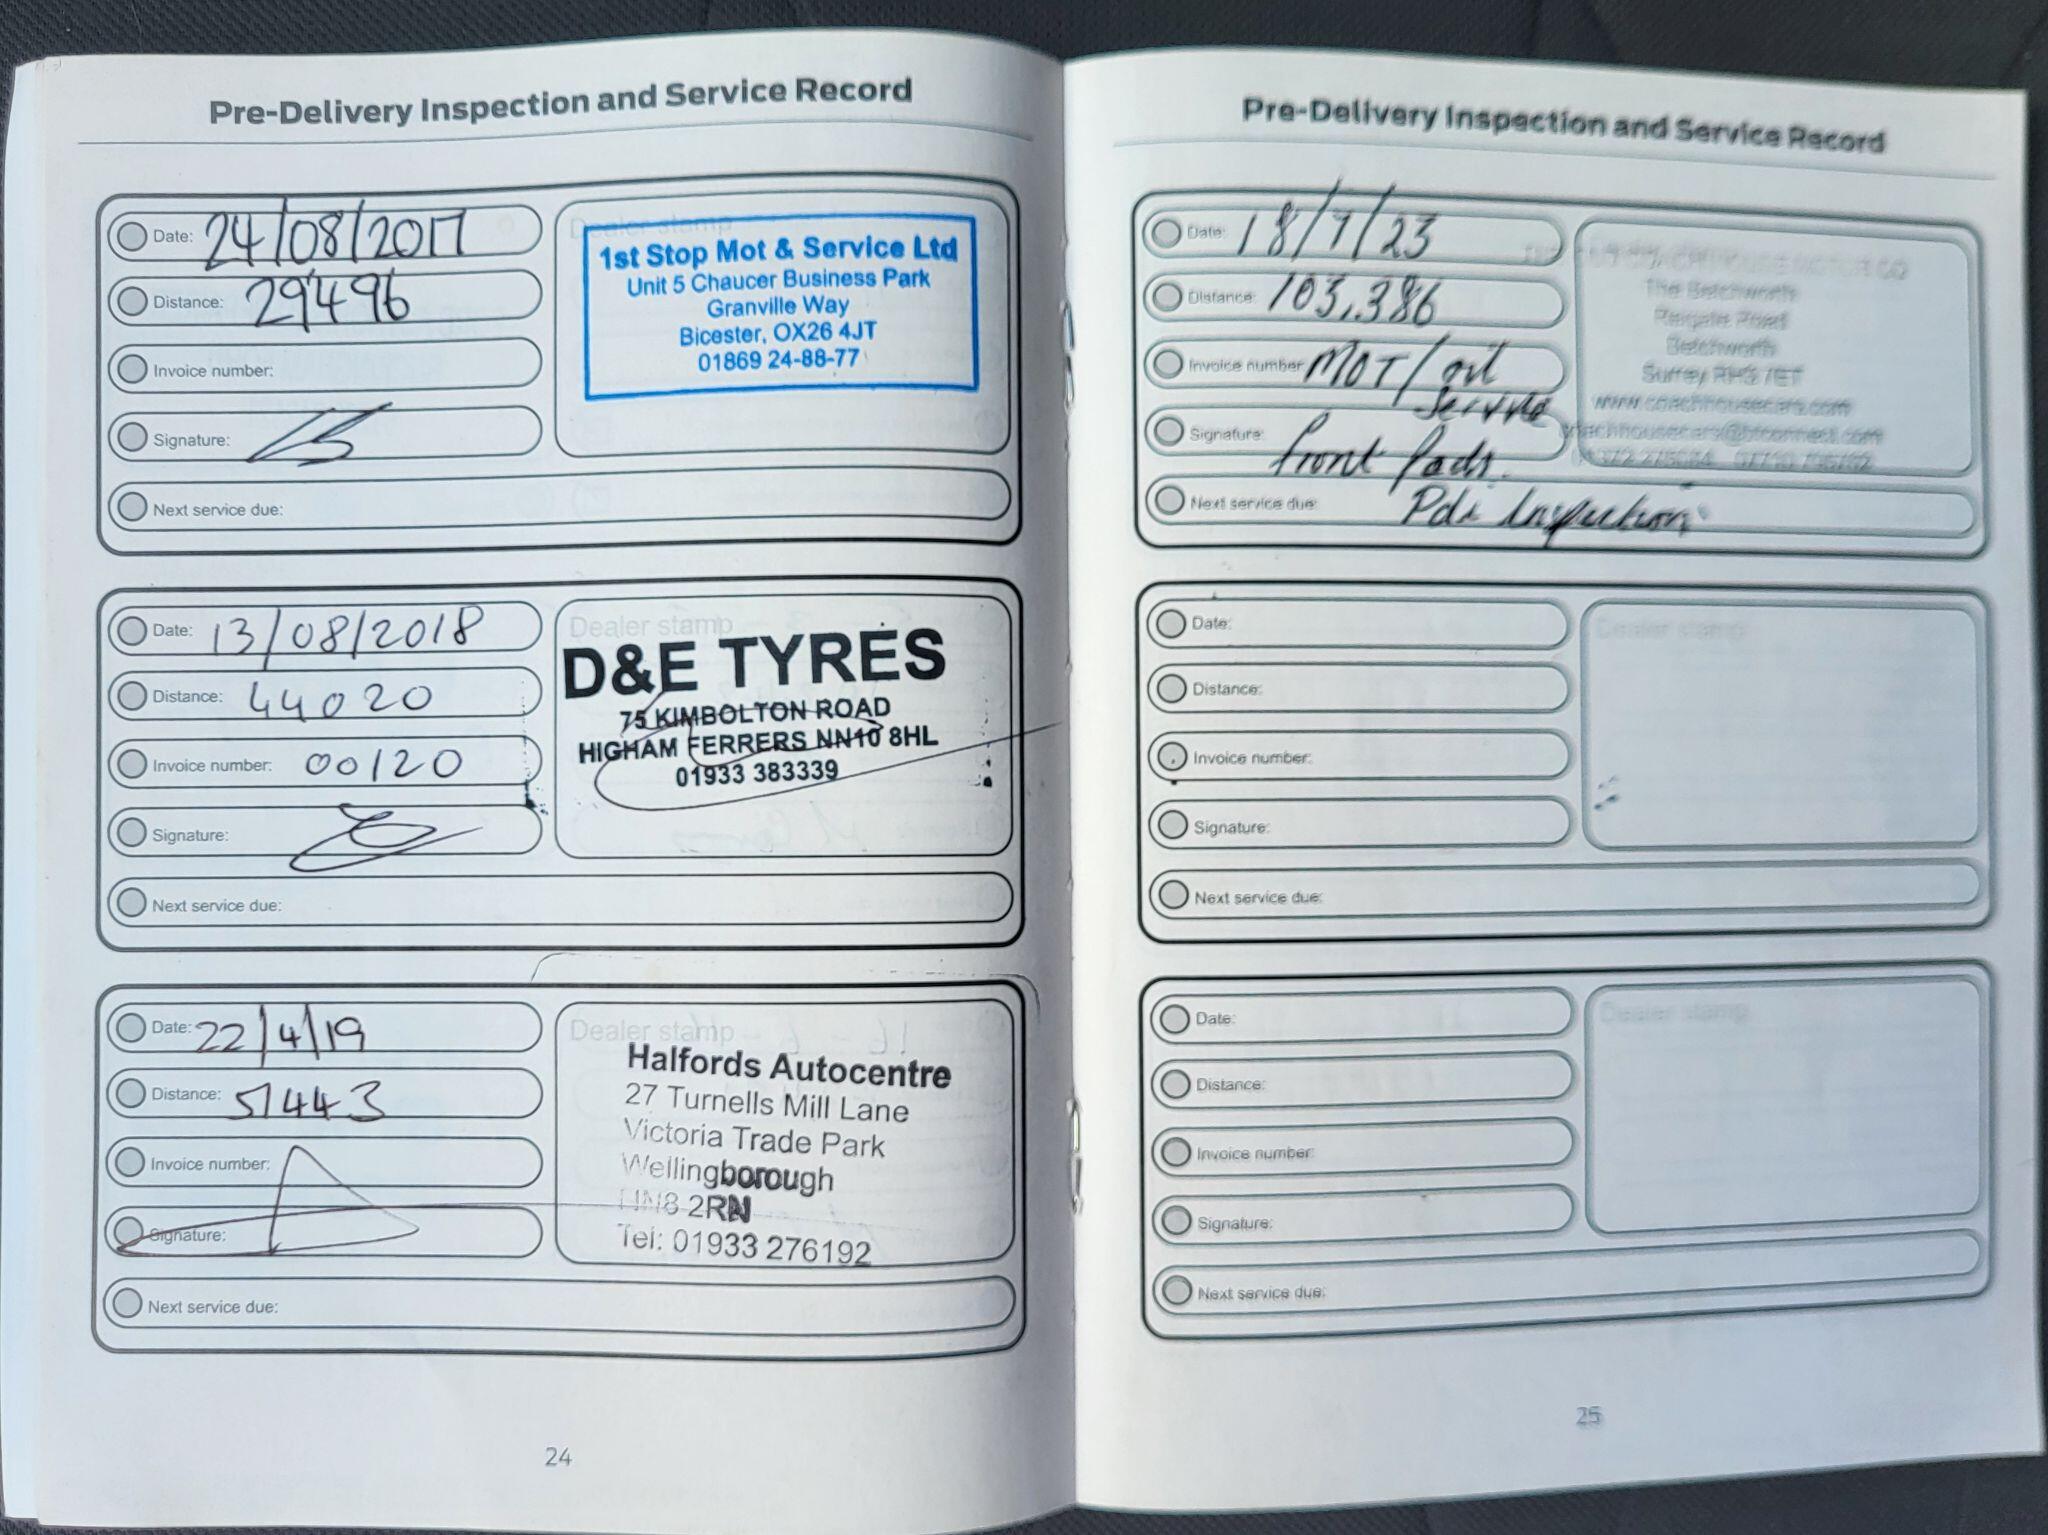 Pre-Delivery Inspection and Service Record
Date: 24/08/2017
Distance: 29496
Invoice number:
Signature:
Next service due:
Dealer stamp
1st Stop Mot & Service Ltd
Unit 5 Chaucer Business Park
Granville Way
Bicester, OX26 4JT
01869 24-88-77
Date: 13/08/2018
Distance: 44020
Invoice number: 00120
Signature:
Next service due:
Dealer stamp
D&E TYRES
75 KIMBOLTON ROAD
HIGHAM FERRERS NN10 8HL
01933 383339
Date: 22/4/19
Distance: 51443
Invoice number:
Signature:
Next service due:
Dealer stamp
Halfords Autocentre
27 Turnells Mill Lane
Victoria Trade Park
Wellingborough
NN8 2RN
Tel: 01933 276192
24
Pre-Delivery Inspection and Service Record
Date: 18/7/23
Distance: 103,386
Invoice number: MOT/oil
Service
Signature: front Pads.
Next service due: Pdi Inspection
COACH HOUSE MOTOR CO
The Betchworth
Reigate Road
Betchworth
Surrey RH3 7ET
www.coachhousecars.com
coachhousecars@btconnect.com
Date:
Distance:
Invoice number:
Signature:
Next service due:
Dealer stamp
Date:
Distance:
Invoice number:
Signature:
Next service due:
Dealer stamp
25